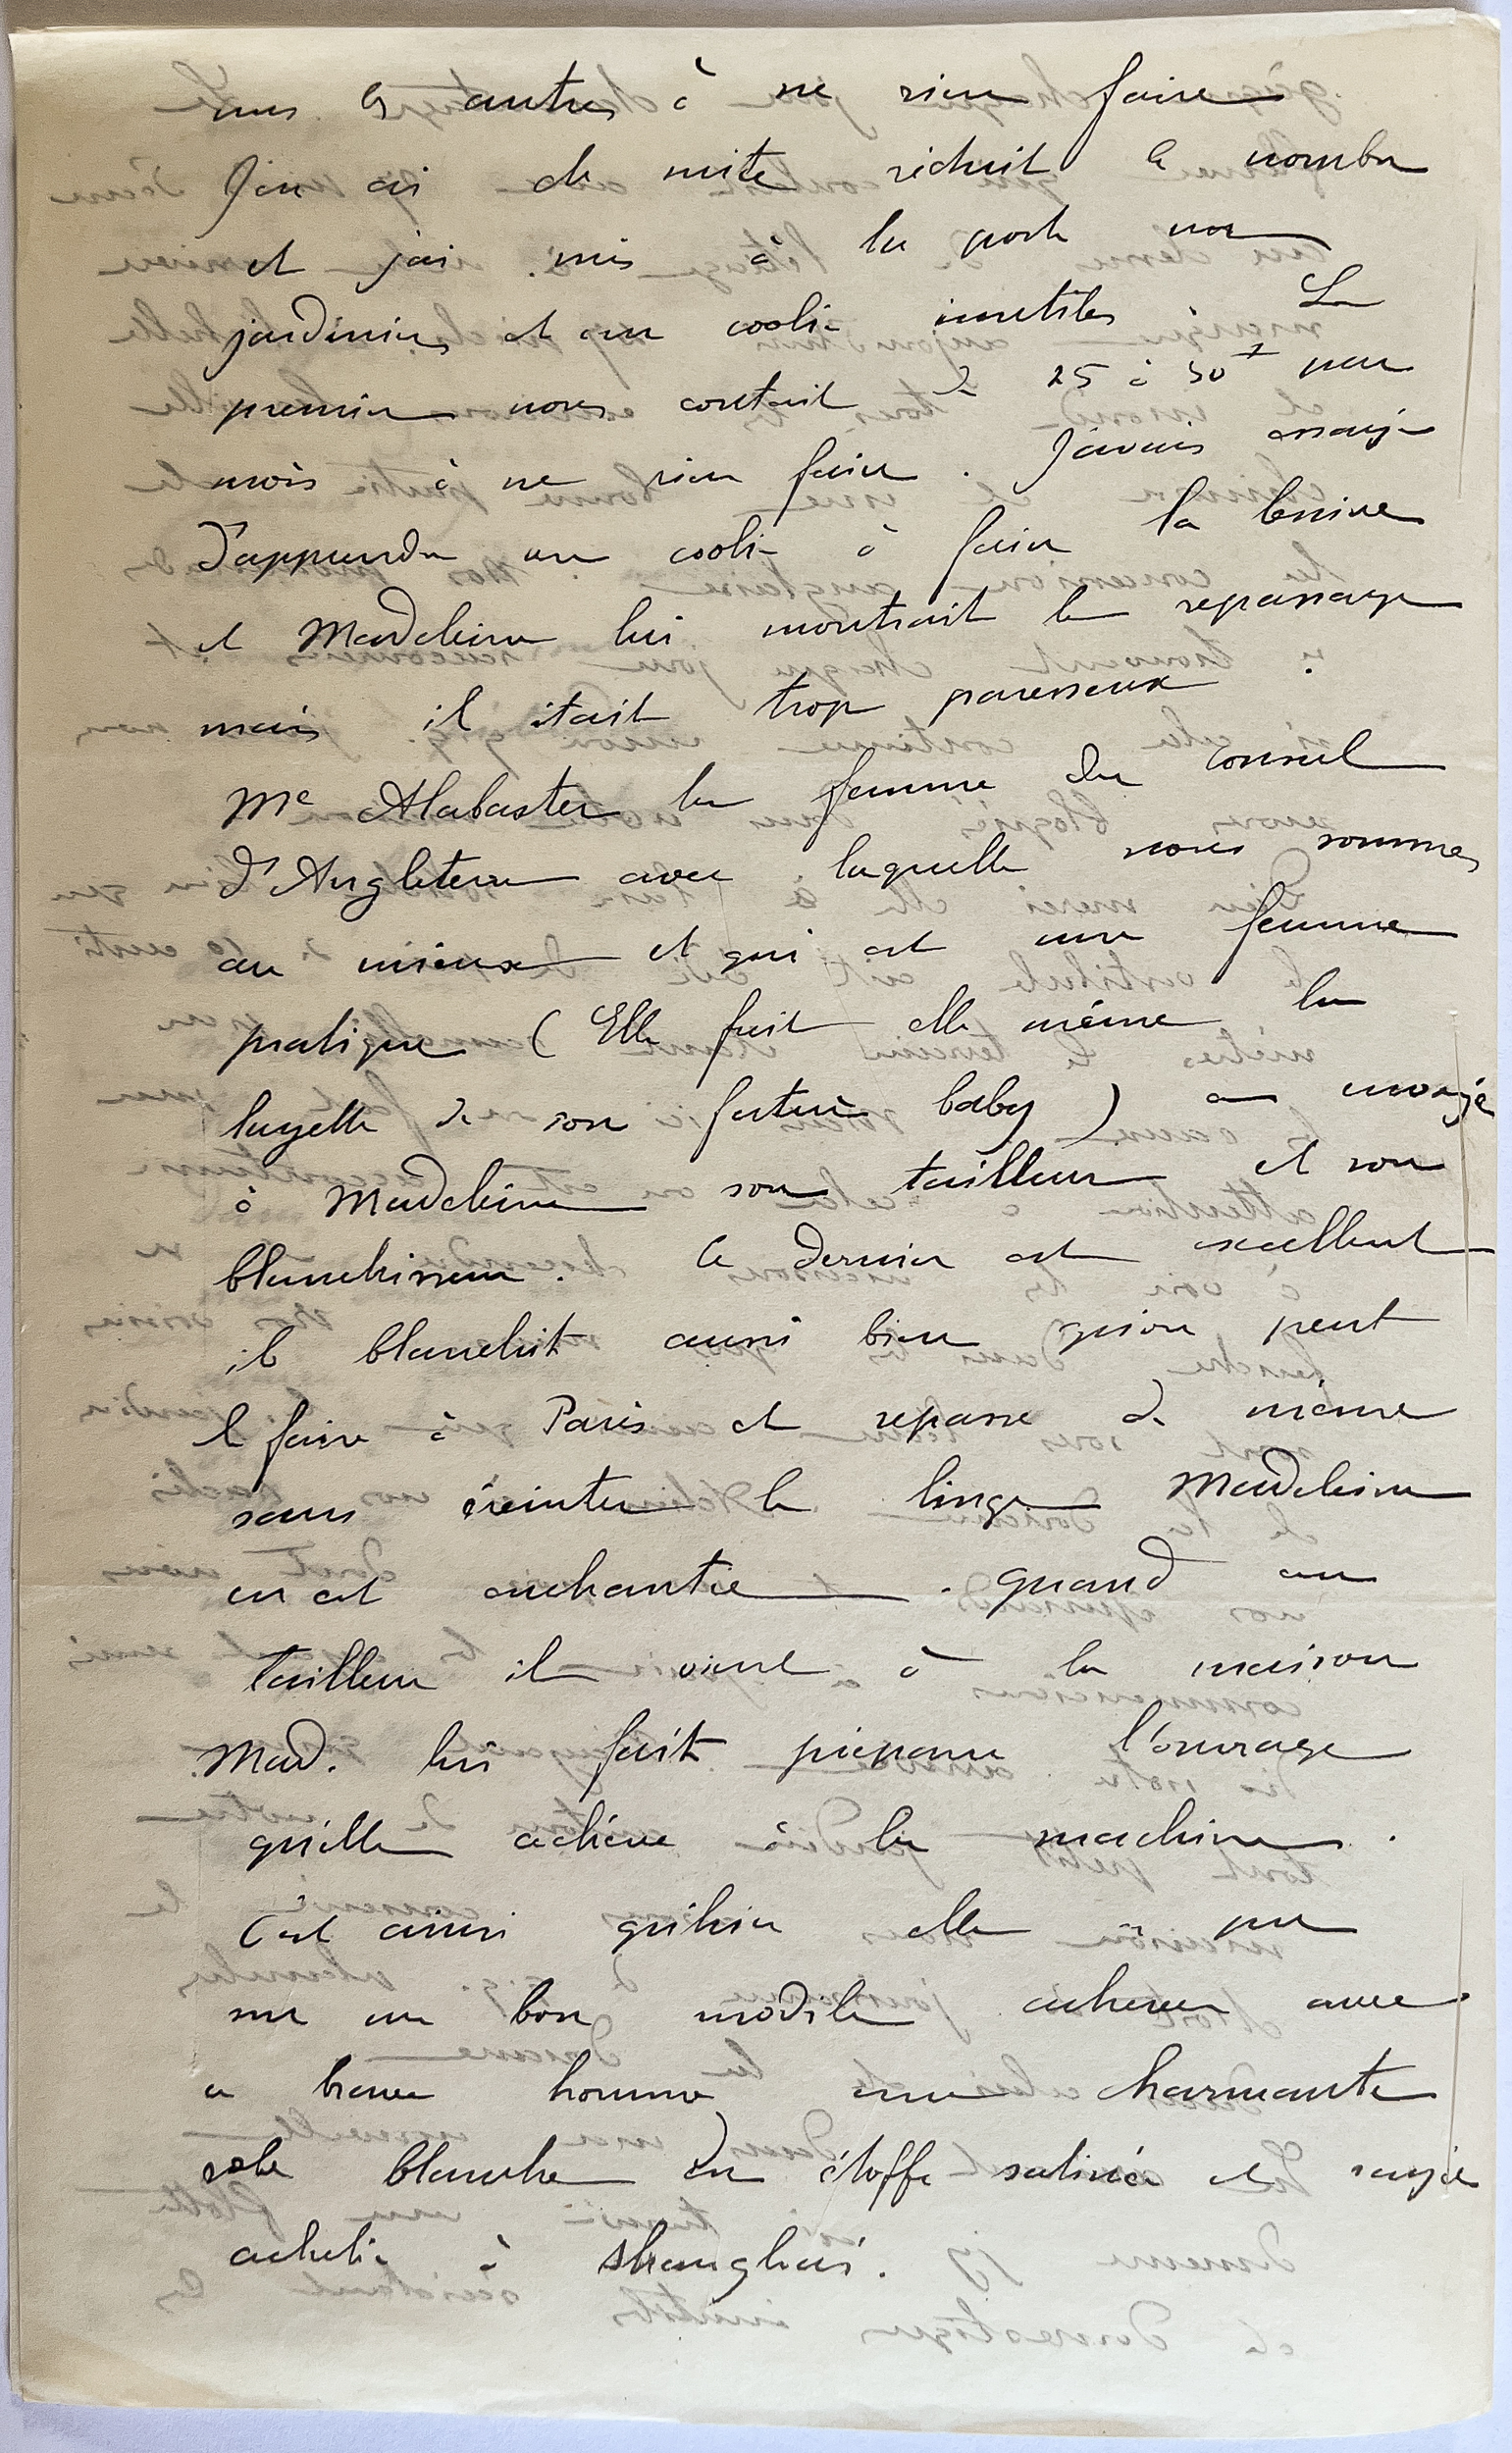 uns les autres à ne rien faire
J'en ai de suite réduit le nombre
et j'ai mis à la porte nos
jardiniers et un coolie inutiles. Les
premiers nous coutait de 25 à 30 par
mois à ne rien faire. J'avais essayé
d'apprendre un coolie à faire la lessive
et Madeleine lui montrait le repassage
mais il était trop paresseux.
Me Alabaster la femme du consul
d'Angleterre avec laquelle nous sommes
au mieux et qui est une femme
pratique (Elle fait elle même la
layette de son futur baby) a envoyé
à Madeleine son tailleur et son
blanchisseur. Ce dernier est excellent
il blanchit aussi bien qu'on peut
le faire à Paris et repasse de même
sans éreinter le linge Madeleine
en est enchantée. quand au
tailleur il vient à la maison
Mad. lui fait préparer l'ouvrage
qu'elle achève à la machine.
C'est ainsi qu'hier elle a pu
sur un bon modèle achever avec
ce brave homme une charmante
robe blanche en étoffe satinée et rayée
achetée à Shanghaï.